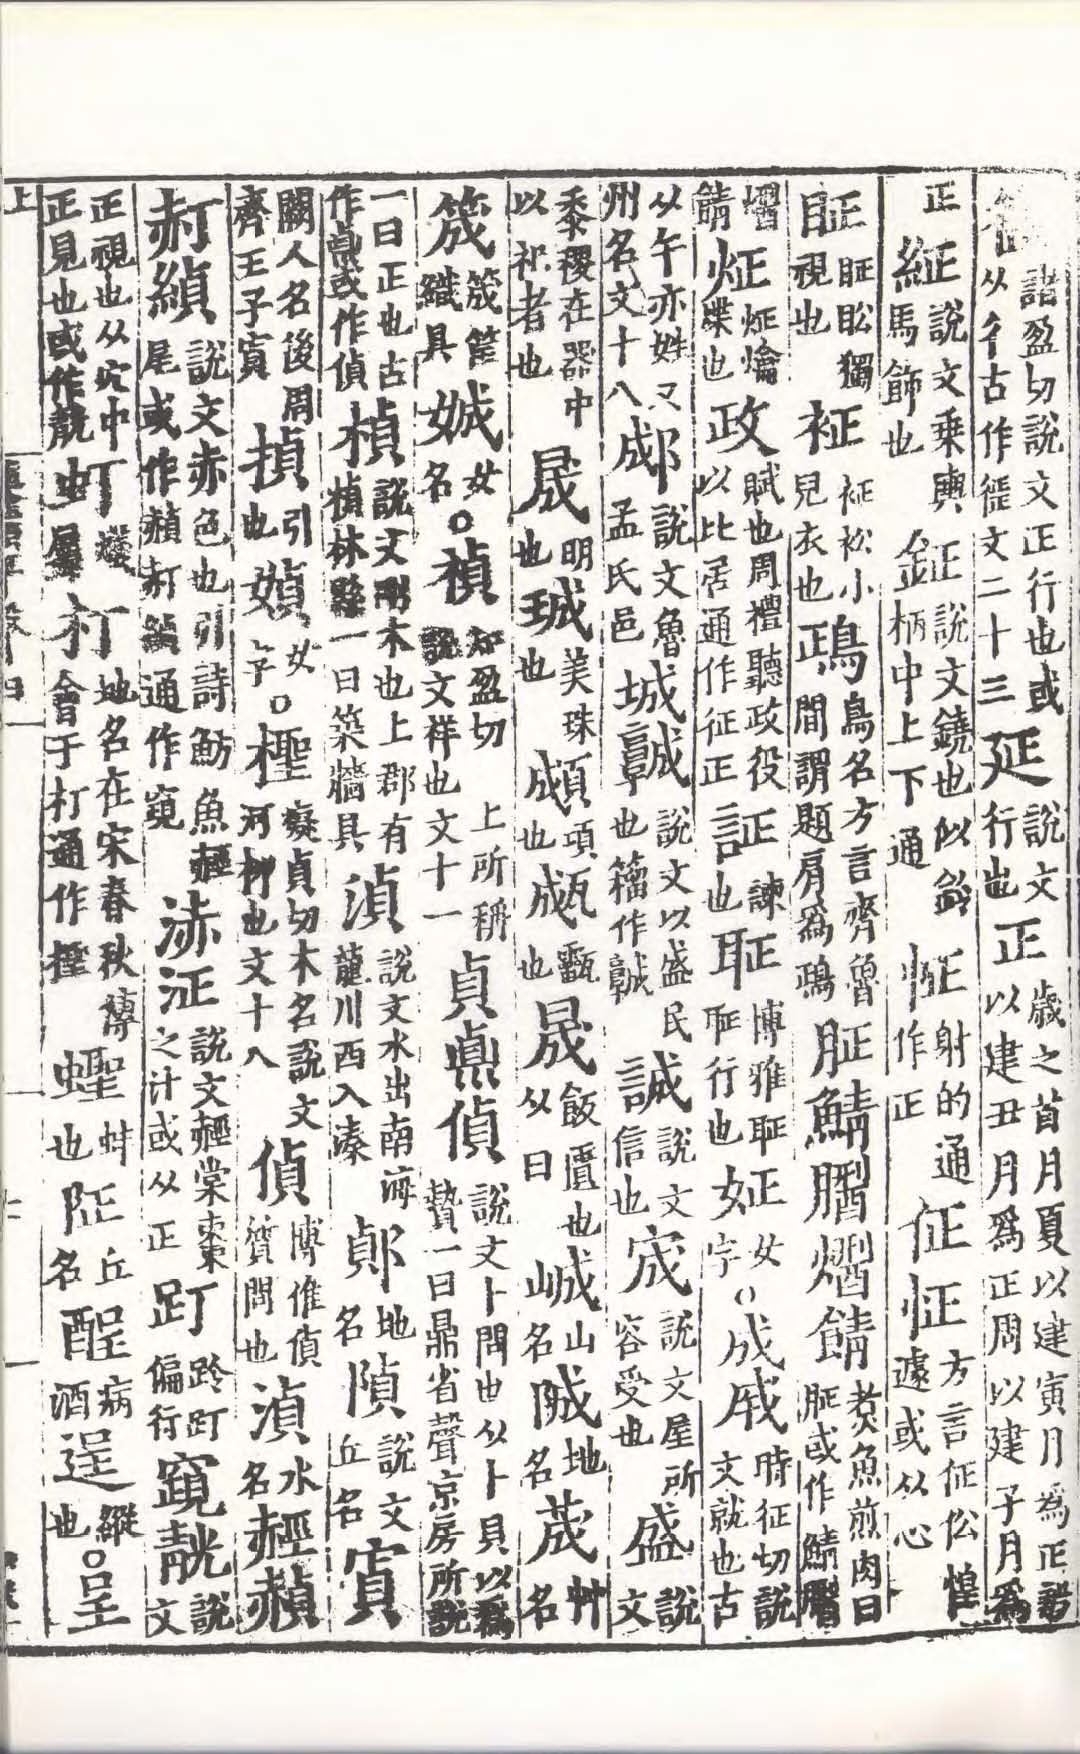 征 諸盈切說文正行也或从彳古作徰文二十三 延 說文行也 正 歲之首月夏以建寅月為正商以建丑月為正周以建子月為
正 紝 說文乘輿馬飾也 鉦 說文鐃也似鈴柄中上下通 怔 射的通作正 佂怔 方言佂伀惶遽或从心
眐 眐眇獨視也 衦 衦衳小兒衣也 鴊 鳥名方言齊魯間謂題肩為鴊 脡鯖䐗熠䭊 煑魚煎肉曰脡或作鯖
熠䭊 炡 炡爚煠也 政 賦也周禮聽政役以比居通作征正 証 諫也 聇 博雅聇聇行也 姃 女字 ○成戚 時征切說文就也古
从午亦姓又州名文十八 郕 說文魯孟氏邑 城𩫨 說文以盛民也籀作𩫨 誠 說文信也 宬 說文屋所容受也 盛 說文
黍稷在器中以祀者也 晟 明也 珹 美珠也 䫆 項也 瓬 甂也 晟 飯匱也从曰 峸 山名 䧕 地名 荿 艸名
筬 筬筐織具 娍 女名 ○禎 知盈切說文祥也文十一 貞鼑偵 上所稱說文卜問也从卜貝以為贄一曰鼎省聲京房所說
一曰正也古作鼑或作偵 楨 說文剛木也上郡有楨林縣一曰築牆具 湞 說文水出南海龍川西入溱 鄓 地名 隕 說文丘名 寊
闕人名後周齊王子寊 揁 引也 媜 女字 ○檉 癡貞切木名說文河柳也文十八 偵 博雅偵質問也 湞 水名 䞓赬
赪䋊 說文赤色也引詩魴魚䞓尾或作赬𧹛䋊通作竀 浾泟 說文䞓棠棗之汁或从正 趶 跉趶偏行 竀䚎 說文
正視也从穴中正見也或作䚎 虰 蠥屬 朾 地名在宋春秋傳會于朾通作檉 蟶 蚌也 阷 丘名 酲 病酒 逞 縱也 ○呈